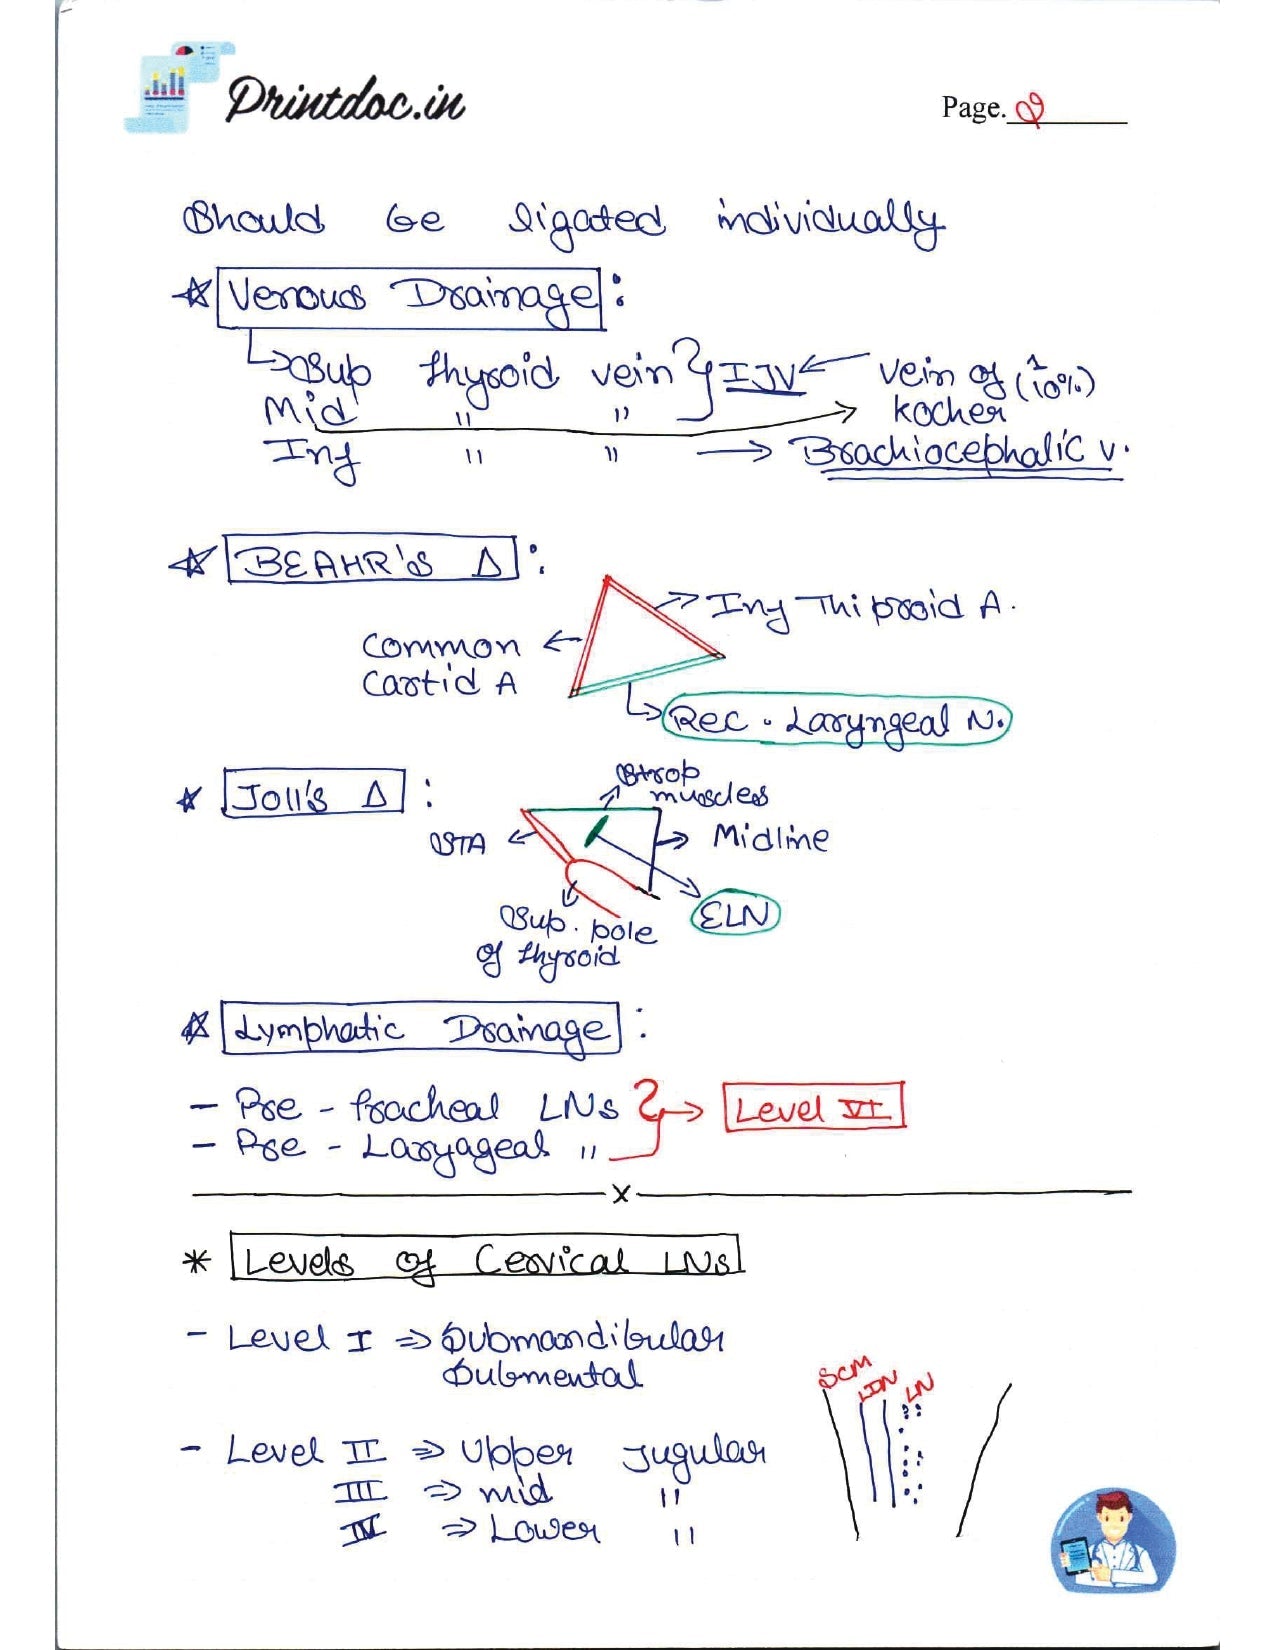 Printdoc.in
Page. 2
Should be ligated individually
* Venous Drainage :
Sup thyroid vein } IJV ← vein of (↑10%)
Mid " " → kocher
Inf " " → Brachiocephalic v.
* BEAHR's Δ :
Inf Thiproid A.
Common
Cartid A
Rec. Laryngeal N.
* Joll's Δ :
Strop
muscles
STA
Midline
ELN
Sup. pole
of thyroid
* Lymphatic Drainage :
- Pre - tracheal LNs } → Level VI
- Pre - Laryageal "
x
* Levels of Cervical LNs
- Level I ⇒ Submandibular
Submental
SCM
IJN
LN
- Level II ⇒ Upper Jugular
III ⇒ mid "
IV ⇒ Lower "